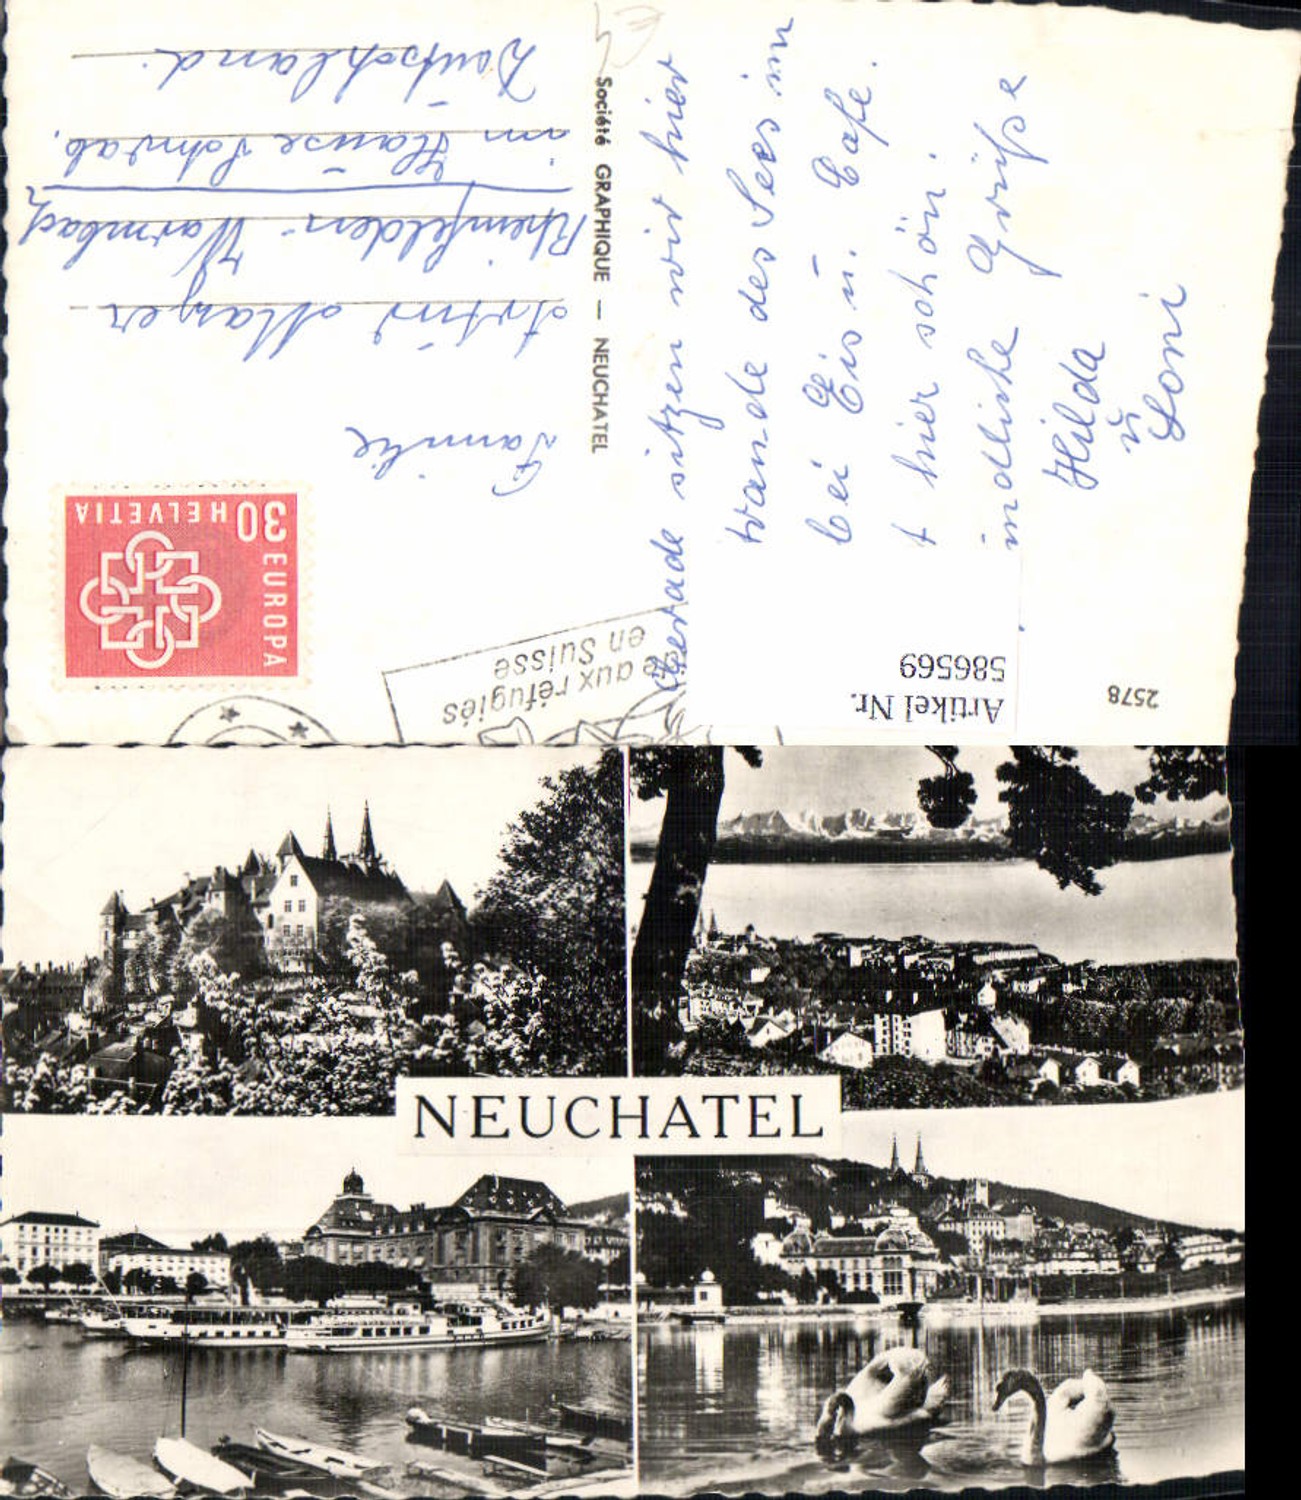 Gerade sitzen wir hier
trande des Sees im
bei Eis u. Cafe.
t hier schön.
indliche Grüße
Hilda
u
Loni
Société GRAPHIQUE — NEUCHATEL
Familie
Artur Mayer
Rheinfelden-Warmbach
im Hause Schwab.
Deutschland.
30 HELVETIA
EUROPA
e aux réfugiés
en Suisse
Artikel Nr.
586569
2578
NEUCHATEL